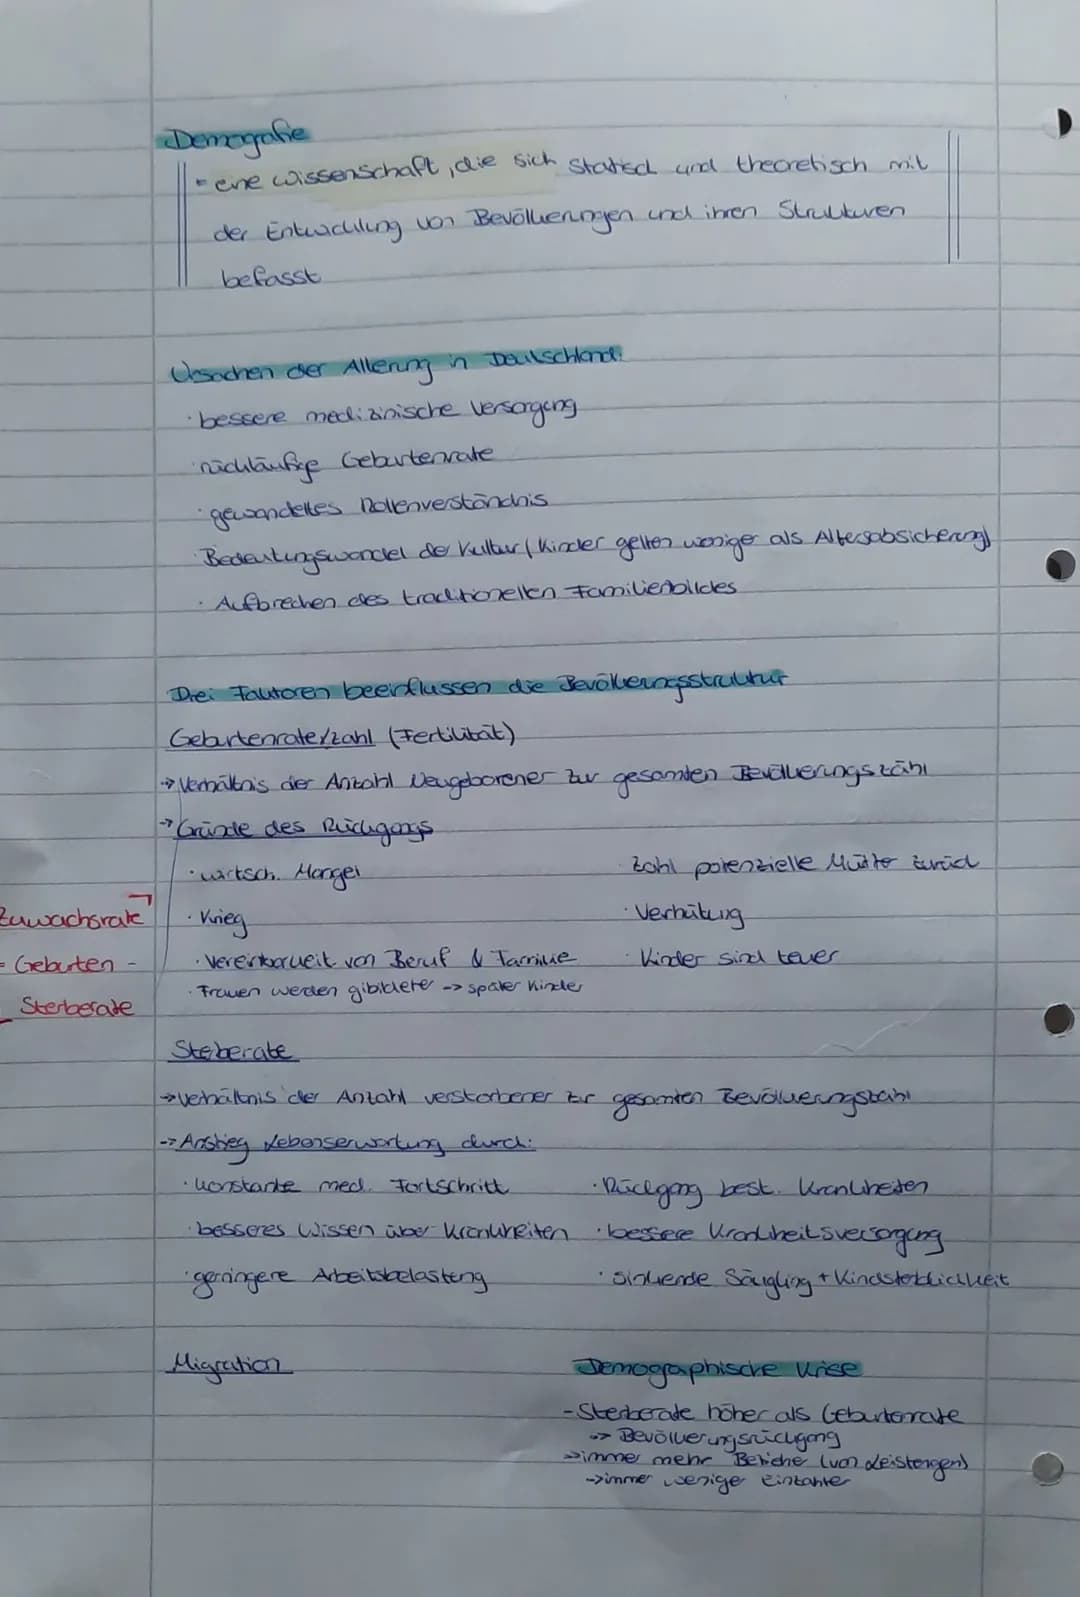 Demografie
= eine Wissenschaft, die sich statisch und theoretisch mit
der Entwicklung von Bevölkerungen und ihren Strukturen
befasst
Ursachen der Alterung in Deutschland:
· bessere medizinische Versorgung
· rückläufige Geburtenrate
· gewandeltes Rollenverständnis
· Bedeutungswandel der Kultur (Kinder gelten weniger als Altersabsicherung)
· Aufbrechen des traditionellen Familienbildes
Drei Faktoren beeinflussen die Bevölkerungsstruktur
Geburtenrate/zahl (Fertilität)
→ Verhältnis der Anzahl Neugeborener zur gesamten Bevölkerungszahl
→ Gründe des Rückgangs
· wirtsch. Mangel
· Krieg
· Vereinbarkeit von Beruf & Familie
· Frauen werden gibildeter -> später Kinder
Zahl potenzielle Mütter zurück
· Verhütung
· Kinder sind teuer
Zuwachsrate
= Geburten -
Sterberate
Sterberate
→ Verhältnis der Anzahl verstorbener zur gesamten Bevölkerungszahl
-> Anstieg Lebenserwartung durch:
· konstante med. Fortschritt
· besseres Wissen über Krankheiten
· gerningere Arbeitsbelastung
· Rückgang best. Krankheiten
· bessere Krankheitsversorgung
· sinkende Säugling + Kindsterblichkeit
Migration
Demographische Krise
- Sterberate höher als Geburtenrate
-> Bevölkerungsrückgang
-> immer mehr Bezieher (von Leistungen)
-> immer wenige Einzahler